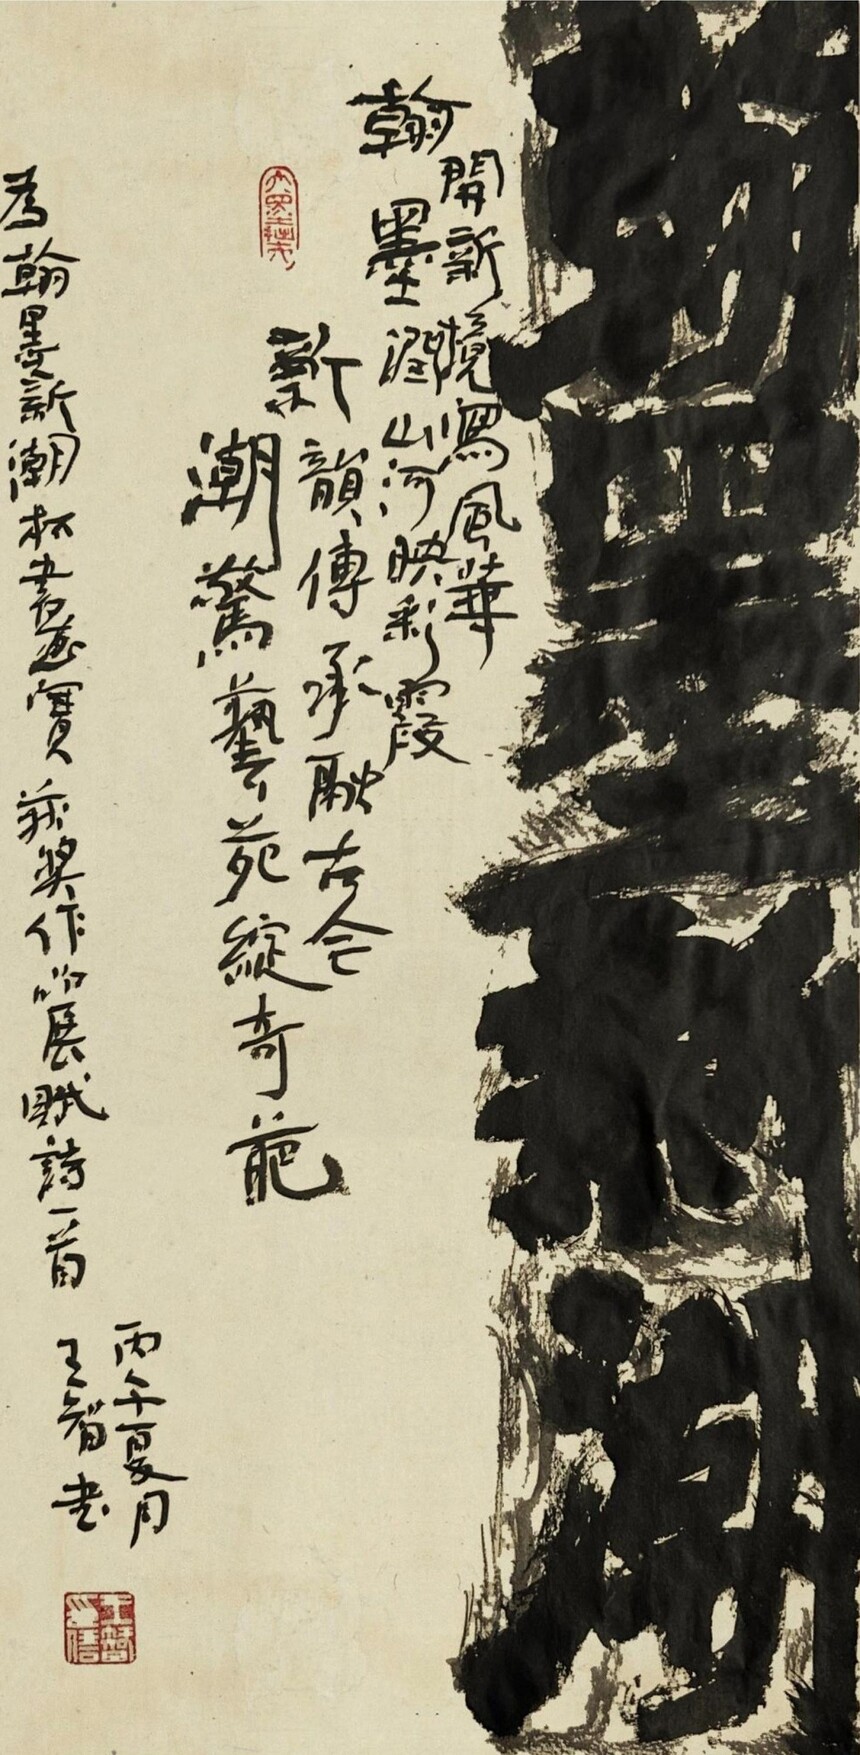 翰墨新潮
翰開新境寫風華
墨潤山河映彩霞
新韻傳承融古今
潮驚藝苑綻奇葩
為翰墨新潮杯書賽获奖作品展賦詩一首
丙午夏月
王智书